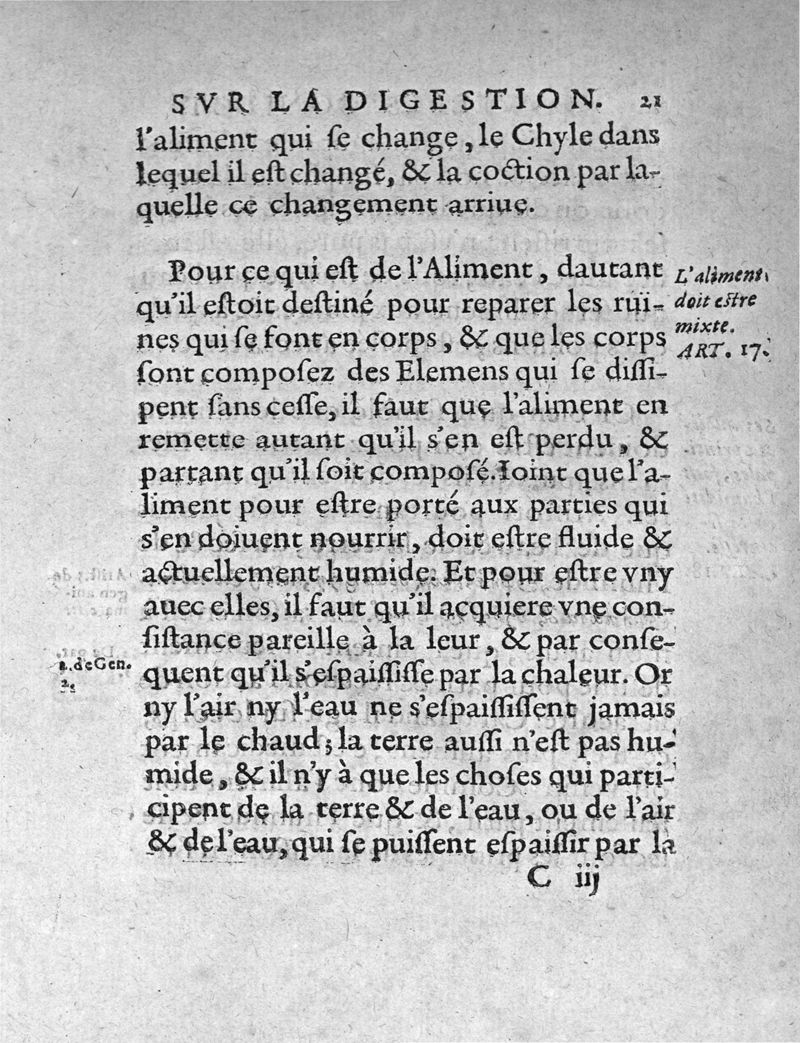 SVR LA DIGESTION. 21
l'aliment qui ſe change, le Chyle dans
lequel il eſt changé, & la coction par la-
quelle ce changement arriue.
Pour ce qui eſt de l'Aliment, dautant
qu'il eſtoit deſtiné pour reparer les rüi-
nes qui ſe font en corps, & que les corps
ſont compoſez des Elemens qui ſe diſſi-
pent ſans ceſſe, il faut que l'aliment en
remette autant qu'il s'en eſt perdu, &
partant qu'il ſoit compoſé. Ioint que l'a-
liment pour eſtre porté aux parties qui
s'en doiuent nourrir, doit eſtre fluide &
actuellement humide: Et pour eſtre vny
auec elles, il faut qu'il acquiere vne con-
ſiſtance pareille à la leur, & par conſe-
quent qu'il s'eſpaiſſiſſe par la chaleur. Or
ny l'air ny l'eau ne s'eſpaiſſiſſent jamais
par le chaud; la terre auſſi n'eſt pas hu-
mide, & il n'y à que les choſes qui parti-
cipent de la terre & de l'eau, ou de l'air
& de l'eau, qui ſe puiſſent eſpaiſſir par la
C iij
L'aliment
doit eſtre
mixte.
ART. 17.
2. de Gen.
2.